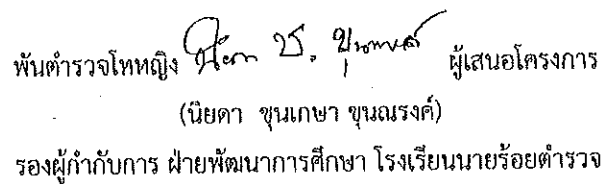 พันตำรวจโทหญิง ผู้เสนอโครงการ
(นิยดา ชุนเกษา ขุนณรงค์)
รองผู้กำกับการ ฝ่ายพัฒนาการศึกษา โรงเรียนนายร้อยตำรวจ